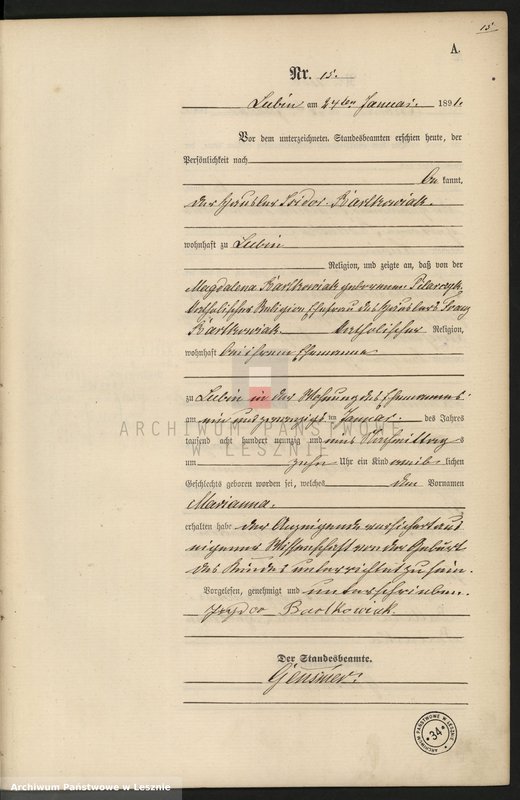 15
A.
Nr. 15.
Lubin am 24ten Januar 1891.
Vor dem unterzeichneten Standesbeamten erschien heute, der
Persönlichkeit nach
be kannt,
der Häusler Isidor Bartkowiak.
wohnhaft zu Lubin
Religion, und zeigte an, daß von der
Magdalena Bartkowiak geborenen Pilarczyk,
katholischer Religion Ehefrau des Häuslers Franz
Bartkowiak katholischer Religion,
wohnhaft bei ihrem Ehemanne
zu Lubin in der Wohnung des Ehemannes
am ein und zwanzigsten Januar des Jahres
tausend acht hundert neunzig und eins Nachmittag s
um zehn Uhr ein Kind weib lichen
Geschlechts geboren worden sei, welches den Vornamen
Marianna.
erhalten habe der Anzeigende versichert aus
eigener Wissenschaft von der Geburt
des Kindes unterrichtet zu sein.
Vorgelesen, genehmigt und unterschrieben.
Bartkowiak.
Der Standesbeamte.
ARCHIWUM PAŃSTWOWE
W LESZNIE
ARCHIWUM PAŃSTWOWE W LESZNIE
34
Archiwum Państwowe w Lesznie